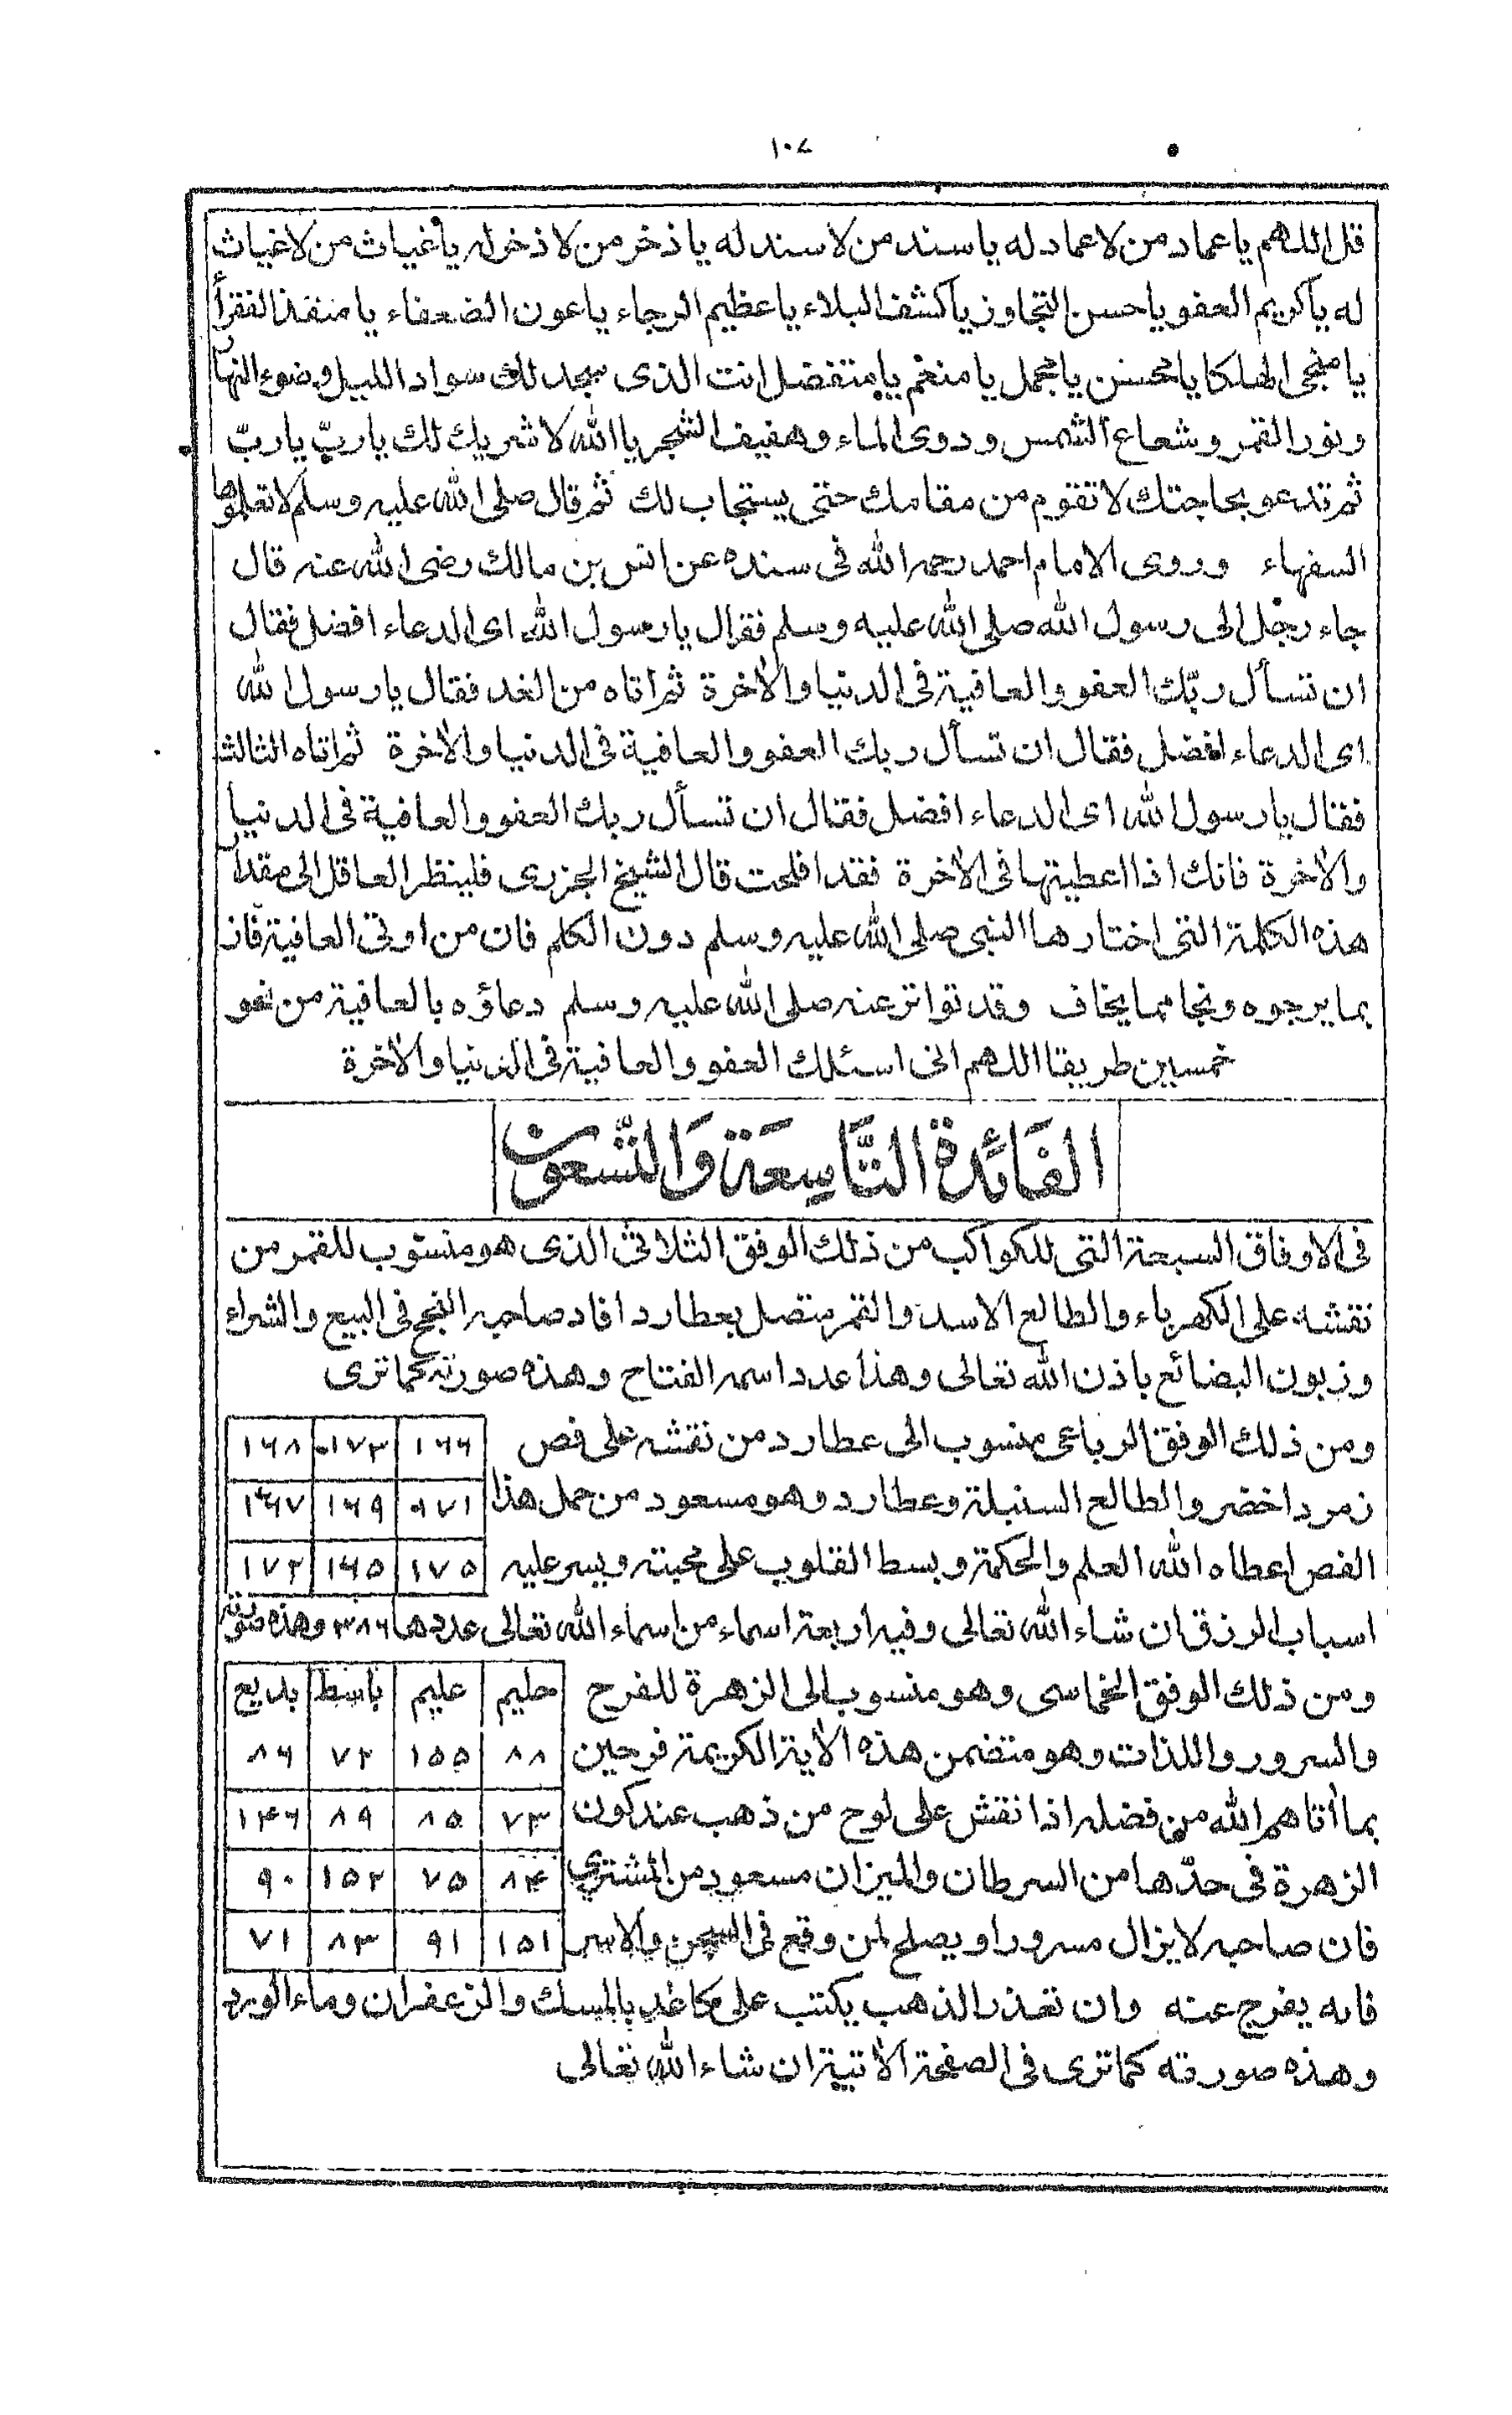 ١٠٧
قل اللهم ياعماد من لاعماد له ياسند من لا سند له يا ذخر من لا ذخر له ياغياث من لاغياث
له ياكريم العفو ياحسن التجاوز ياكشف البلاء ياعظيم الرجاء ياعون الضعفاء يا منقذ الفقرأ
يا منجى الهلكا يا محسن يا مجمل يا منعم يا متفضل انت الذى سجد لك سواد الليل وضوء النهار
ونور القمر وشعاع الشمس ودوى الماء وهفيف الشجر يا الله لا شريك لك يا ربّ يا ربّ
ثم تدعو بحاجتك لا تقوم من مقامك حتى يستجاب لك ثم قال صلى الله عليه وسلم لا تعلموها
السفهاء وروى الامام احمد رحمه الله فى سنده عن انس بن مالك رضى الله عنه قال
جاء رجل الى رسول الله صلى الله عليه وسلم فقال يا رسول الله اى الدعاء افضل فقال
ان تسأل ربّك العفو والعافية فى الدنيا والأخرة ثم اتاه من الغد فقال يا رسول الله
اى الدعاء افضل فقال ان تسأل ربك العفو والعافية فى الدنيا والأخرة ثم اتاه الثالث
فقال يا رسول الله اى الدعاء افضل فقال ان تسأل ربك العفو والعافية فى الدنيا
والأخرة فانك اذا اعطيتها فى الأخرة فقد افلحت قال الشيخ الجزرى فلينظر العاقل الى مقدار
هذه الكلمة التى اختارها النبى صلى الله عليه وسلم دون الكلم فان من اوتى العافية فاز
بما يرجوه ونجا مما يخاف وقد تواتر عنه صلى الله عليه وسلم دعاؤه بالعافية من نحو
خمسين طريقا اللهم انى اسئلك العفو والعافية فى الدنيا والأخرة
الفَائدة التَّاسِعَة وَالتّسعون
فى الاوفاق السبعة التى للكواكب من ذلك الوفق الثلاثى الذى هو منسوب للقمر من
نقشه على الكهرباء والطالع الاسد والقمر متصل بعطارد افاد صاحبه النجح فى البيع والشراء
وزبون البضائع باذن الله تعالى وهذا عدد اسمه الفتاح وهذه صورته كما ترى
١٦٦ ١٧٣ ١٦٨
٩٧١ ١٦٩ ١٦٧
١٧٥ ١٦٥ ١٧٢
ومن ذلك الوفق الرباعى منسوب الى عطارد من نقشه على فص
زمرد اخضر والطالع السنبلة وعطارد وهو مسعود من حمل هذا
الفص اعطاه الله العلم والحكمة وبسط القلوب على محبته ويسر عليه
اسباب الرزق ان شاء الله تعالى وفيه اربعة اسماء من اسماء الله تعالى عددها ٣٨٦ وهذه صورته
حليم عليم باسط بديع
٨٨ ١٥٥ ٧٢ ٨٦
٧٣ ٨٥ ٨٩ ١٤٦
٨٤ ٧٥ ١٥٢ ٩٠
١٥١ ٩١ ٨٣ ٧١
ومن ذلك الوفق الخماسى وهو منسوب الى الزهرة للفرح
والسرور واللذات وهو متضمن هذه الأية الكريمة فرحين
بما أتاهم الله من فضله اذا نقش على لوح من ذهب عند كون
الزهرة فى حدّها من السرطان والميزان مسعود من المشترى
فان صاحبه لا يزال مسرورا ويصلح لمن وقع فى السجن والاسر
فانه يفرج عنه وان تعذر الذهب يكتب على كاغد بالمسك والزعفران وماء الورد
وهذه صورته كما ترى فى الصفحة الأتية ان شاء الله تعالى